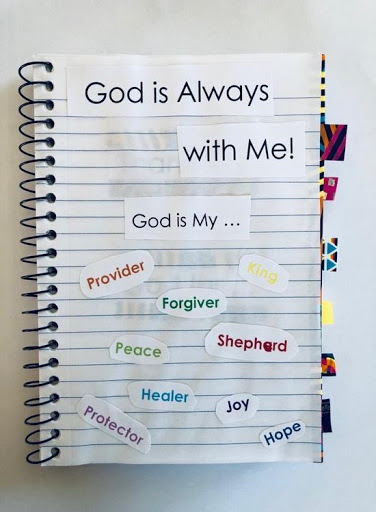 God is Always
with Me!
God is My ...
Provider
King
Forgiver
Peace
Shepherd
Healer
Joy
Protector
Hope